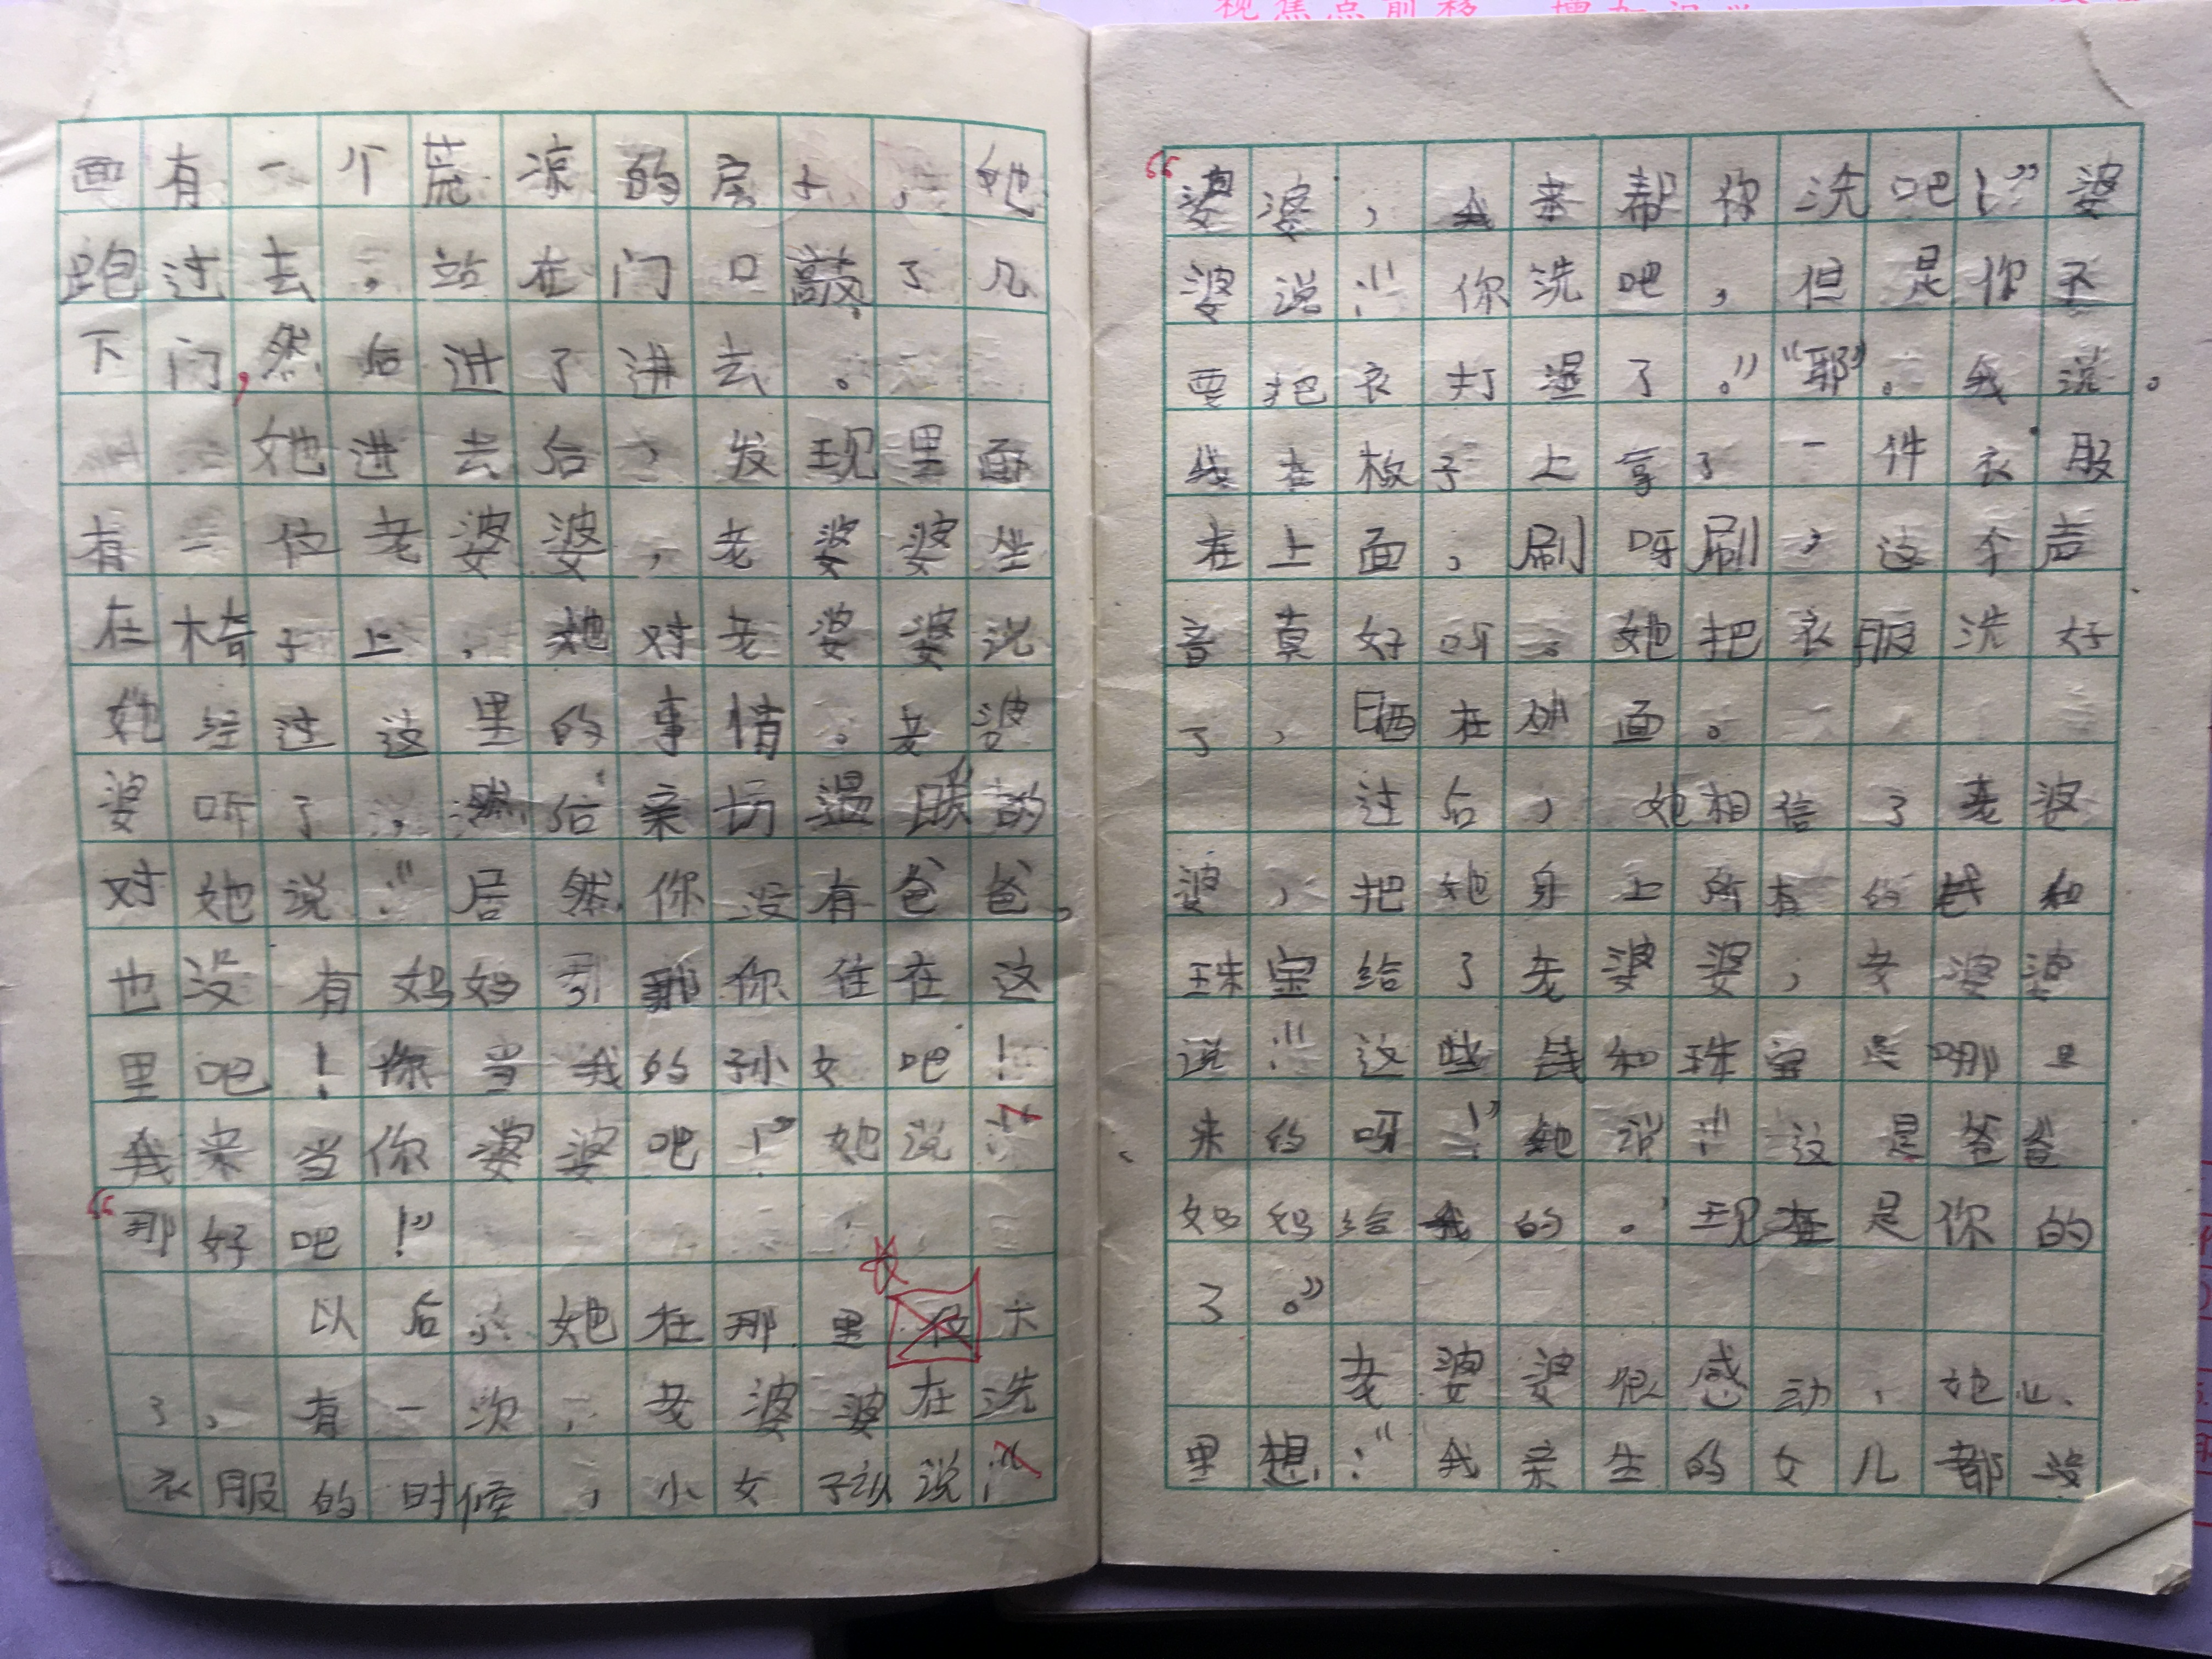 面有一个荒凉的房子，她
跑过去，站在门口敲了几
下门，然后进了进去。
她进去后，发现里面
有一位老婆婆，老婆婆坐
在椅子上，她对老婆婆说
她经过这里的事情。老婆
婆听了，然后亲切温暖的
对她说：“居然你没有爸爸，
也没有妈妈那你住在这
里吧！你当我的孙女吧！
我来当你婆婆吧！”她说：
“那好吧！”
以后，她在那里长大
了，有一次，老婆婆在洗
衣服的时候，小女孩说：
“婆婆，我来帮你洗吧！”婆
婆说：“你洗吧，但是你不
要把衣打湿了。”“耶”。我说。
在板子上拿了一件衣服
在上面，刷呀刷，这个声
音真好听。她把衣服洗好
了，晒在外面。
过后，她相信了老婆
婆，把她身上所有的钱和
珠宝给了老婆婆，老婆婆
说：“这些钱和珠宝是哪里
来的呀！”她说：“这是爸爸
妈妈给我的。现在是你的
了。”
老婆婆很感动，她心
里想：“我亲生的女儿都没